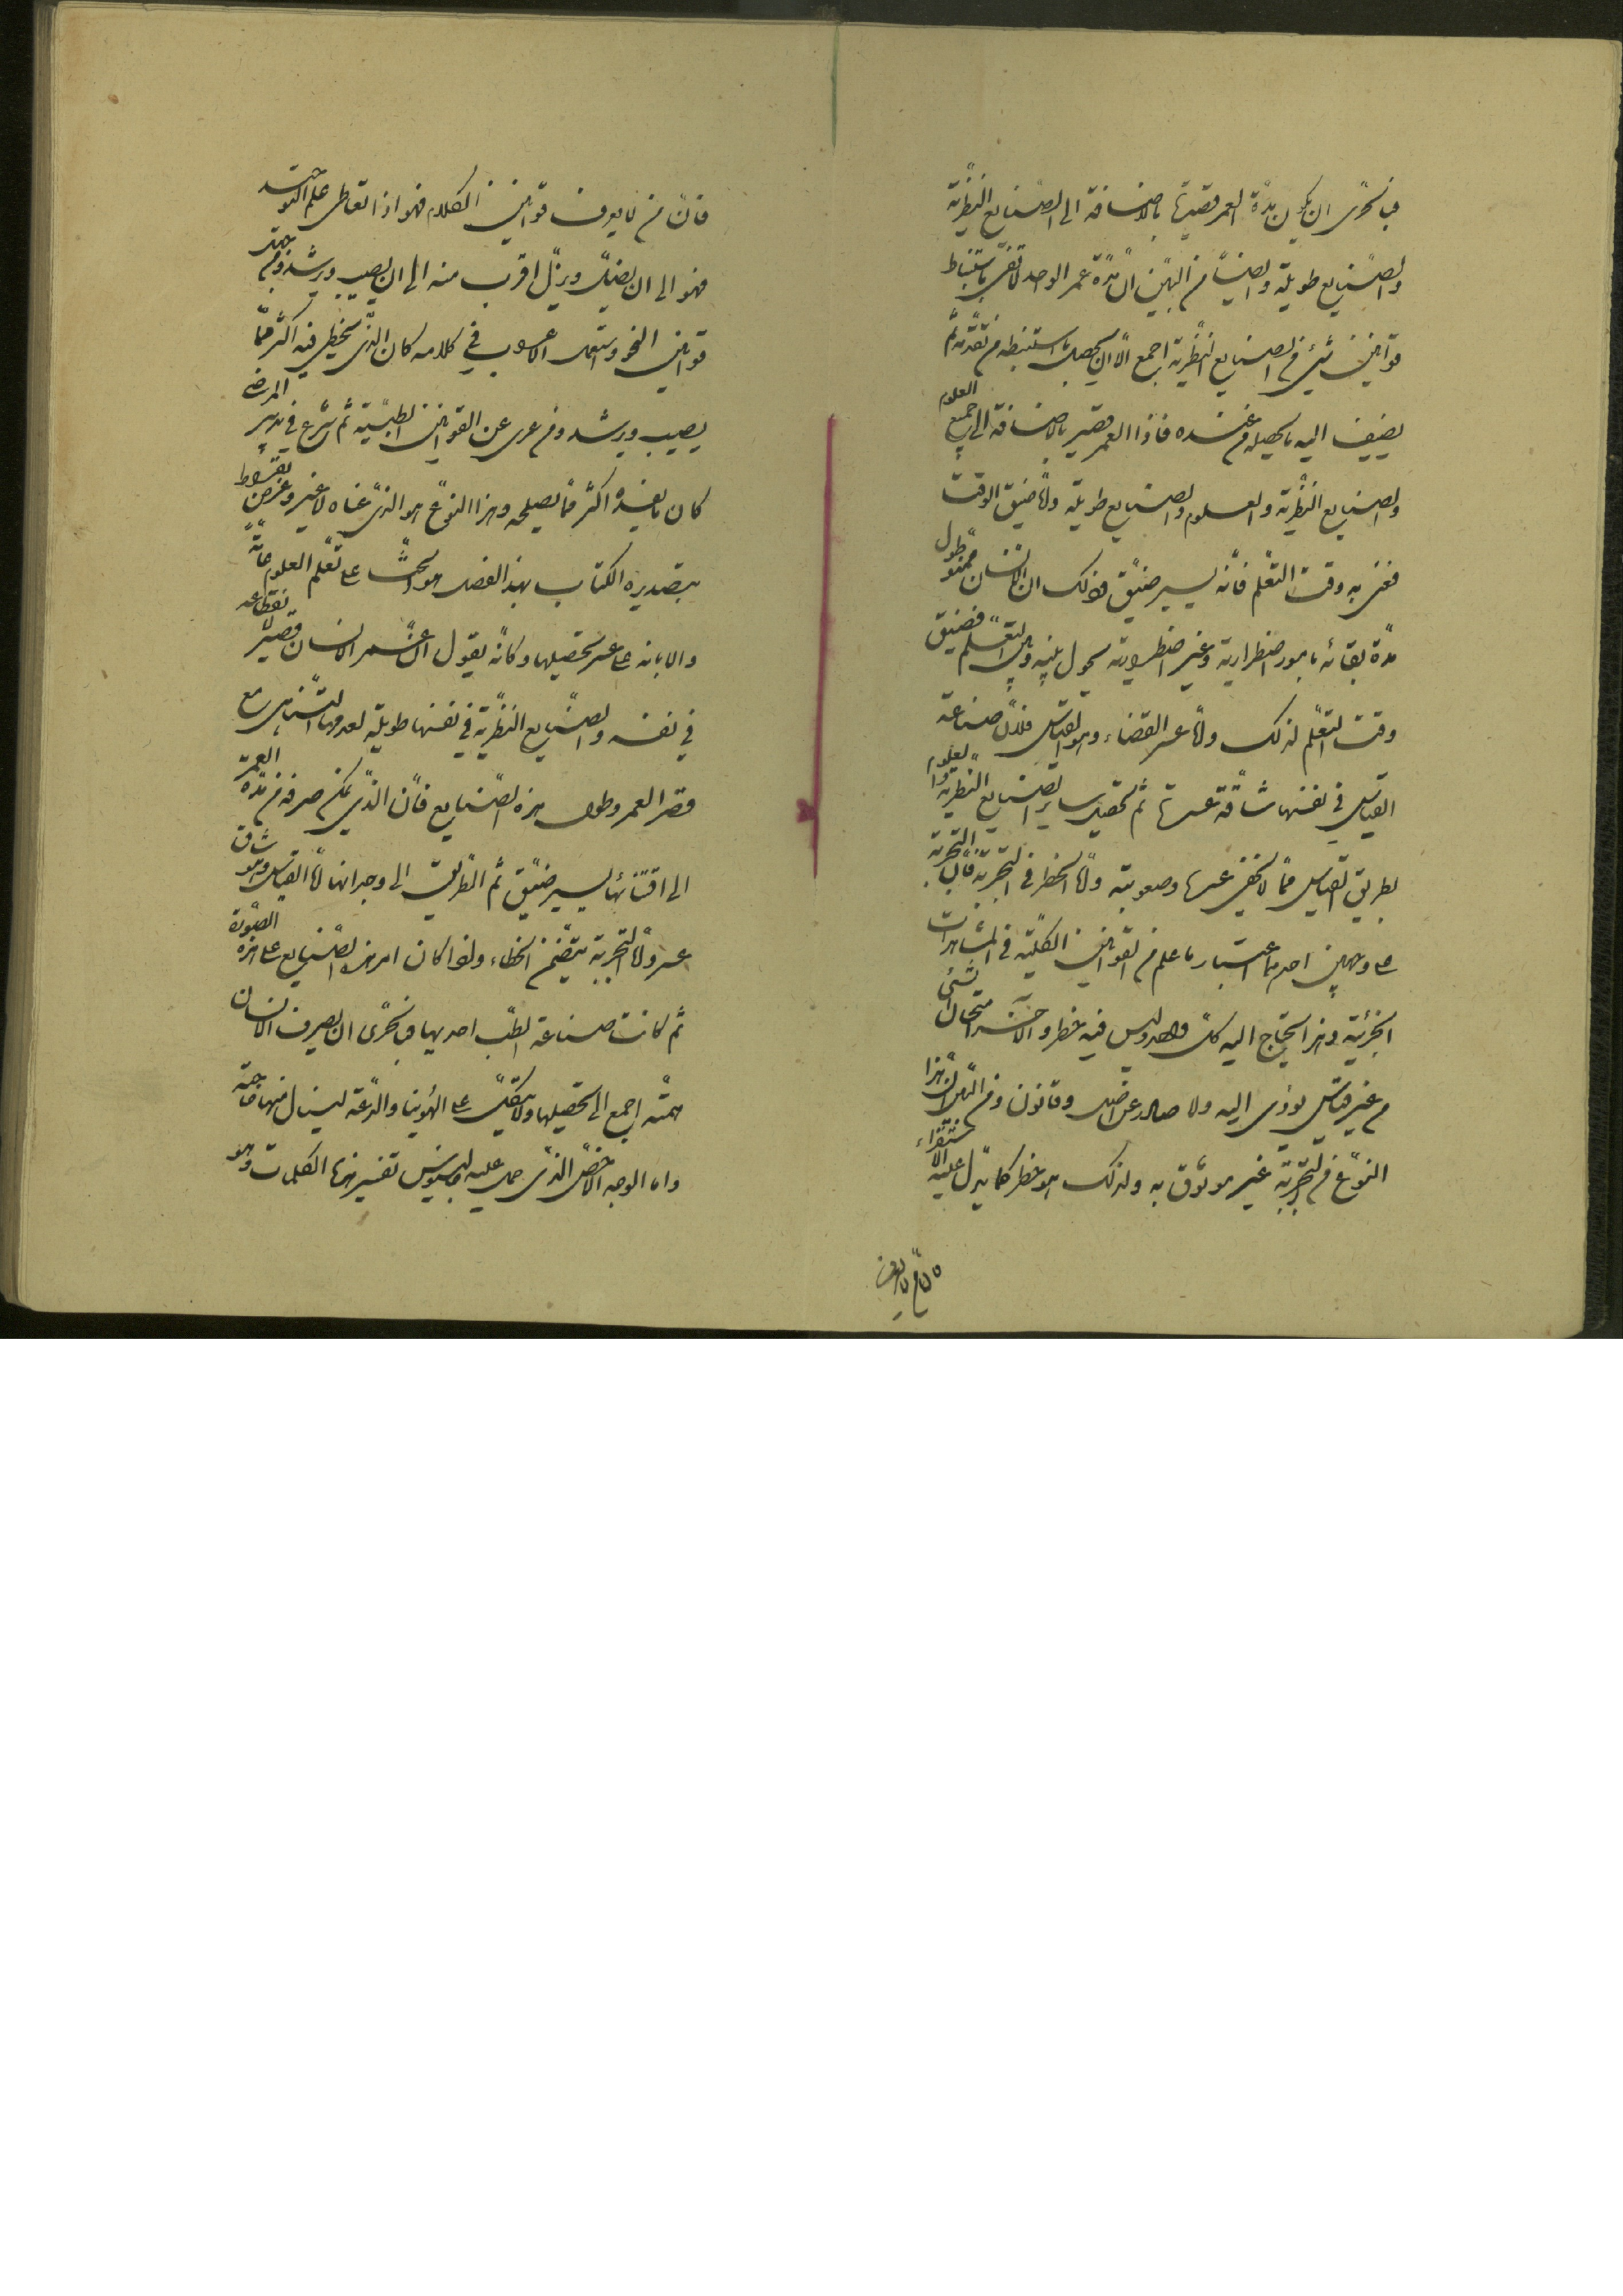 فبالحرى ان يكون مدّة العمر قصيرة بالاضافة الى الصنايع النظرية
والصنايع طويلة وايضا من البيّن انّ مدّة عمر الواحد لا تفى باستنباط
قوانين شئ من الصنايع النظرية اجمع الّا ان يحصل ما استنبطه من تقدّمه ثم
يضيف اليه ما يحصله من عنده فاذا العمر قصير بالاضافة الى جميع العلوم
والصنايع النظرية والعلوم والصنايع طويلة وامّا ضيق الوقت
فعنى به وقت التعلّم فانّه يسير ضيّق وذلك ان الانسان ممنوّ طول
مدّة بقائه بامور اضطرارية وغير اضطرارية تحول بينه وبين التعلّم فضيق
وقت التعلّم لذلك وامّا عسر القضاء وهو القياس فلانّ صناعة
القياس فى نفسها شاقّة عسرة ثم تحصيل ساير الصنايع النظرية والعلوم
بطريق القياس ممّا لا يخفى عسره وصعوبته وامّا الخطر فى التجربة فانّ التجربة
على وجهين احدهما اعتبار ما علم من القوانين الكلّية فى المشاهدات
الجزئية وهذا يحتاج اليه كلّ واحد وليس فيه خطر والآخر امتحان شئ
من غير قياس يؤدى اليه ولا صادر عن اصل وقانون ومن البيّن انّ هذا
النوع من التجربة غير موثوق به ولذلك هو خطر كما يدل عليه الاستقراء
فانّ من لا يعرف
فانّ من لا يعرف قوانين الكلام فهو اذا تعاطى علم التوحيد
فهو الى ان يضلّ ويزلّ اقرب منه الى ان يصيب ويرشد ومن جهل
قوانين النحو واستعمل الاعراب في كلامه كان الذى يخطى فيه اكثر ممّا
يصيب ويرشد ومن عرى عن القوانين الطبية ثم شرع في تدبير المرضى
كان ما يفسده اكثر ممّا يصلحه وهذا النوع هو الذى عناه لا غير وغرض بقراط
بتصديره الكتاب بهذا الفصل هو الحثّ على تعلّم العلوم عامّة
والابانه على عسر تحصيلها وكانّه يقول انّ عمر الانسان قصير
في نفسه والصنايع النظرية في نفسها طويلة لعدمها التناهى مع
قصر العمر وطول هذه الصنايع فانّ الذى يمكن صرفه من مدّة العمر
الى اقتنائها يسير ضيّق ثم الطريق الى وجدانها امّا القياس وهو شاق
عسر وامّا التجربة يتضمّن الخطاء ولمّا كان امر هذه الصنايع على هذه الصورة
ثم كانت صناعة الطب احديها فبالحرى ان يصرف الانسان
همّته اجمع الى تحصيلها ولا يتّكل على الهوينا والدّعة لينال منها حاجته
وامّا الوجه الاخصّ الذى حمل عليه جالينوس تفسير هذه الكلمات وهو